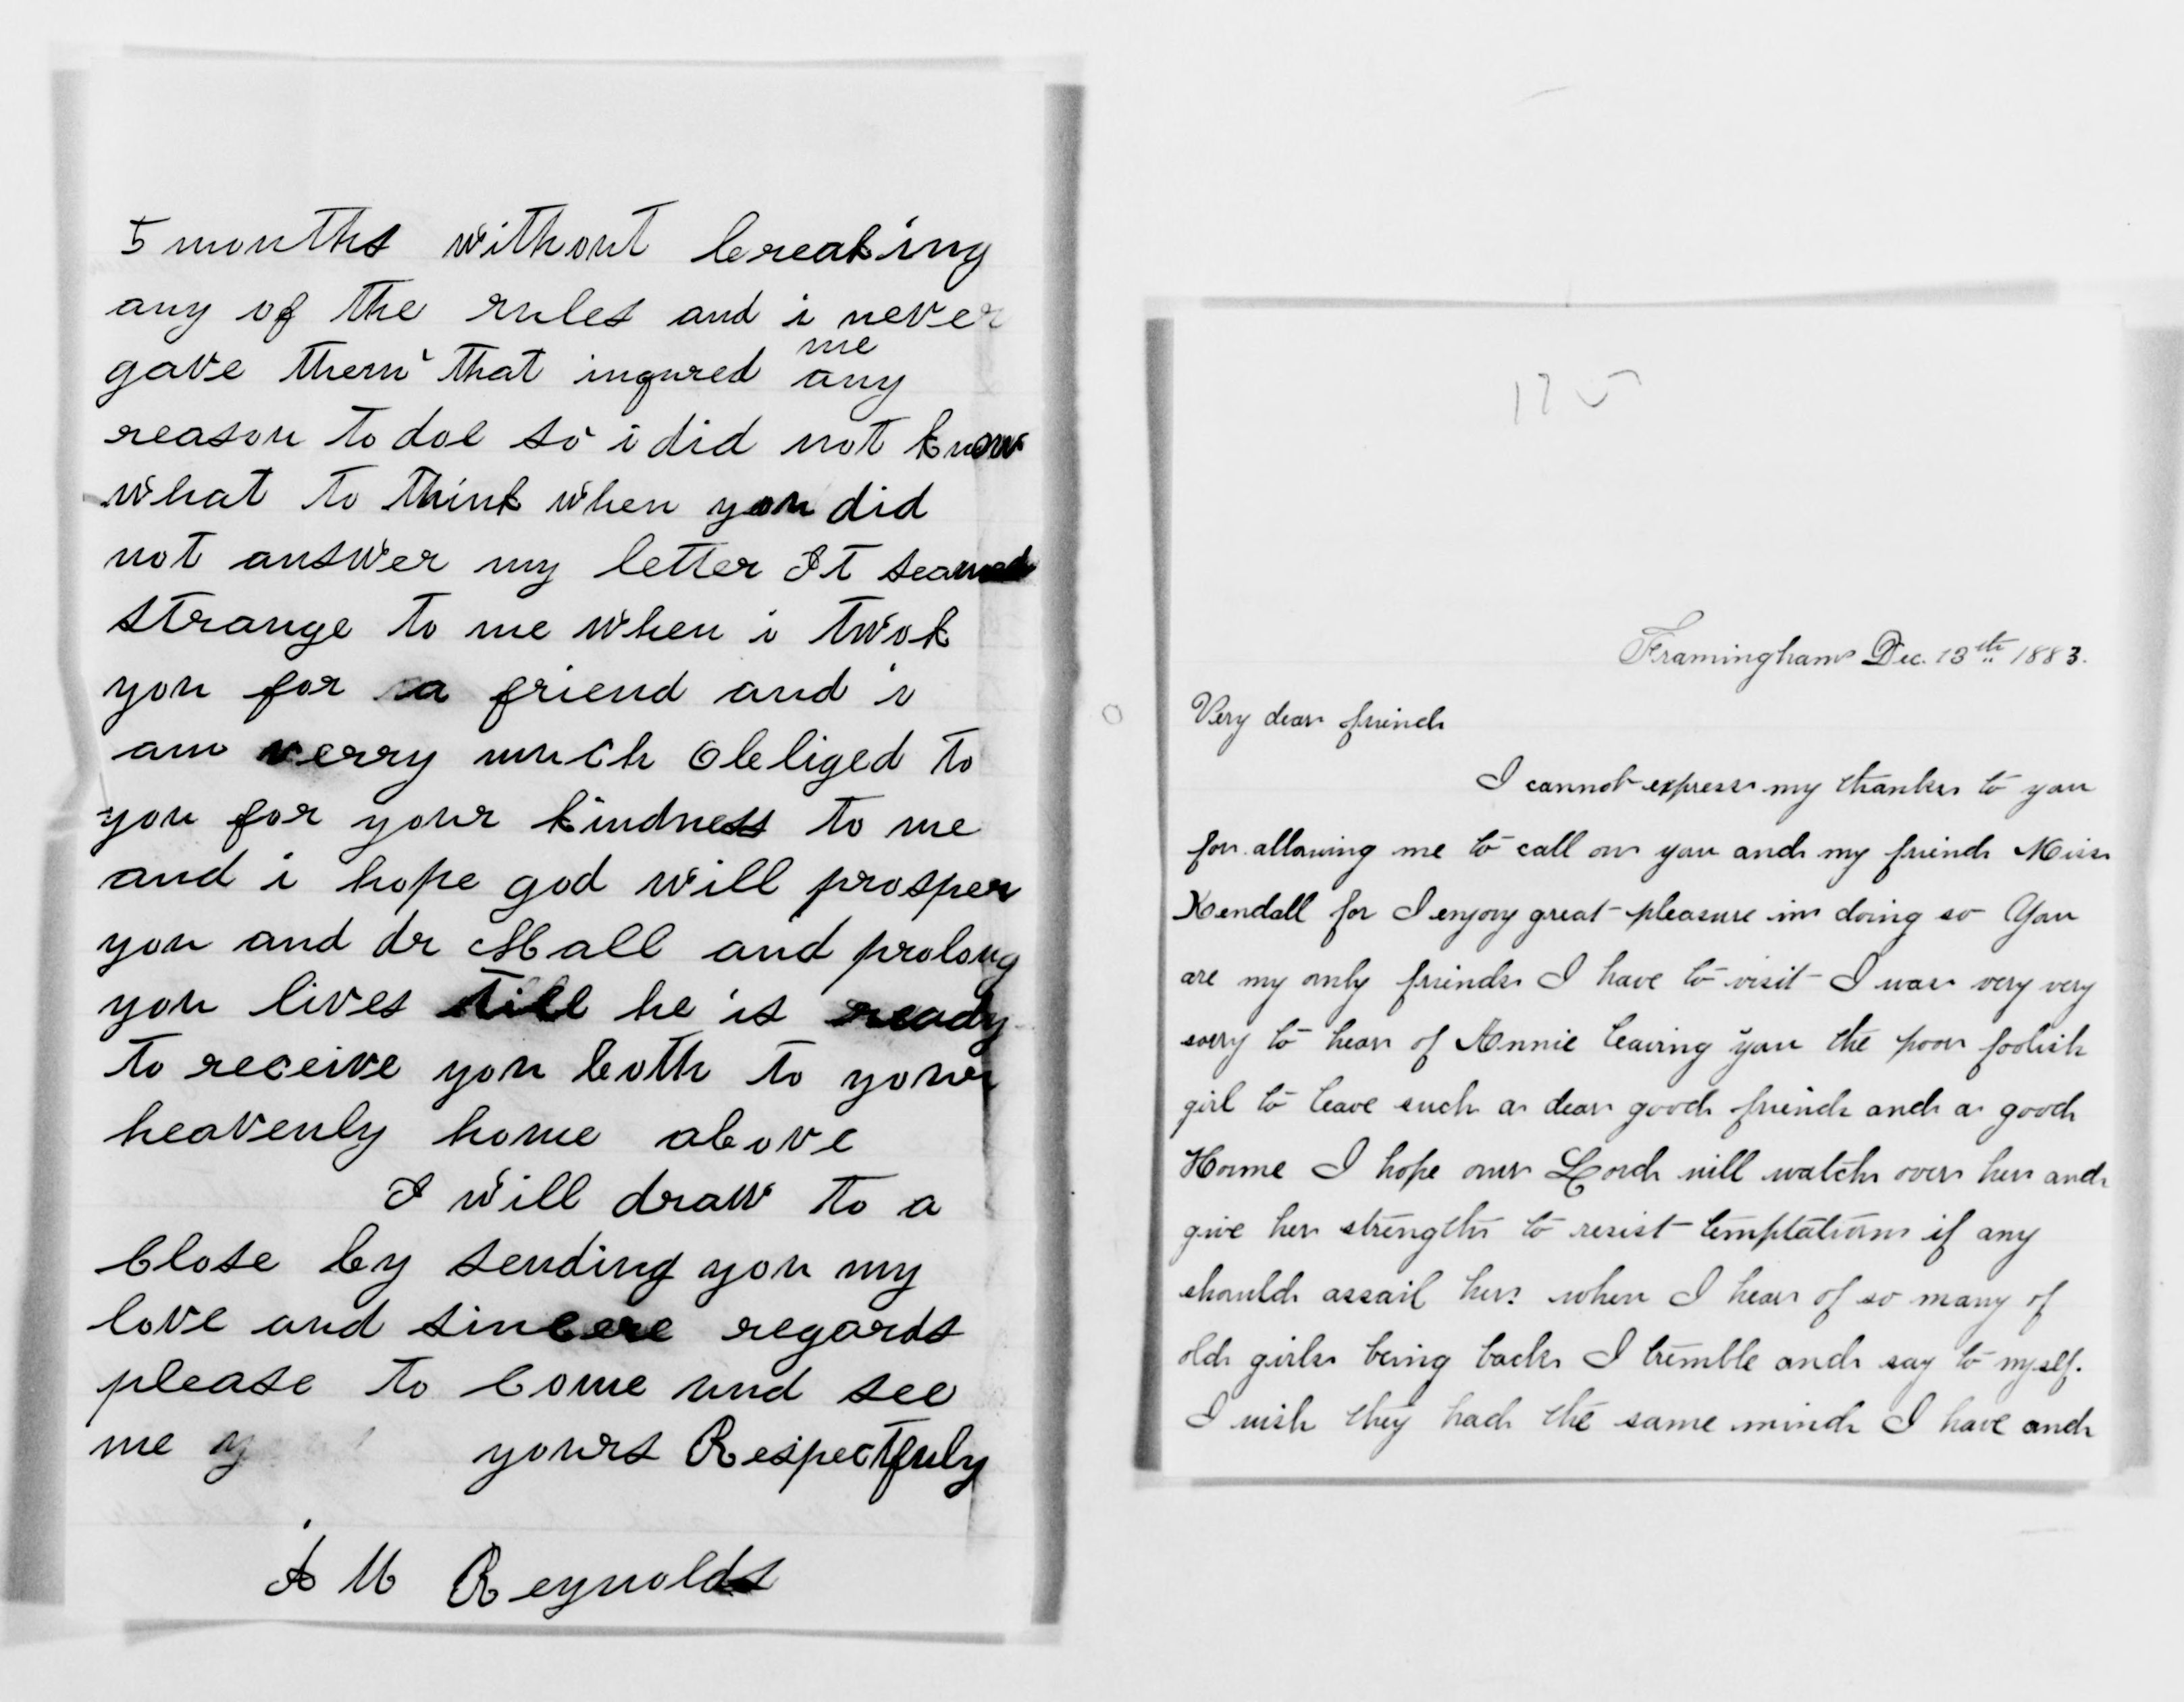 5 months without breaking
any of the rules and i never
gave them that ingured me any
reason to doe so i did not know
what to think when you did
not answer my letter It seamed
strange to me when i twok
you for a friend and i
am verry much obliged to
you for your kindness to me
and i hope god will prosper
you and dr Hall and prolong
you lives till he is ready
to receive you both to your
heavenly home above
I will draw to a
Close by sending you my
love and sincere regards
please to Come and see
me yours Respectfuly
A M Reynolds
Framingham Dec. 13th 1883.
Very dear friend
I cannot express my thanks to you
for allowing me to call on you and my friend Miss
Kendall for I enjoy great pleasure in doing so You
are my only friends I have to visit I was very very
sorry to hear of Annie leaving you the poor foolish
girl to leave such a dear good friend and a good
Home I hope our Lord will watch over her and
give her strength to resist temptation if any
should assail her. when I hear of so many of
old girls being back I tremble and say to myself.
I wish they had the same mind I have and